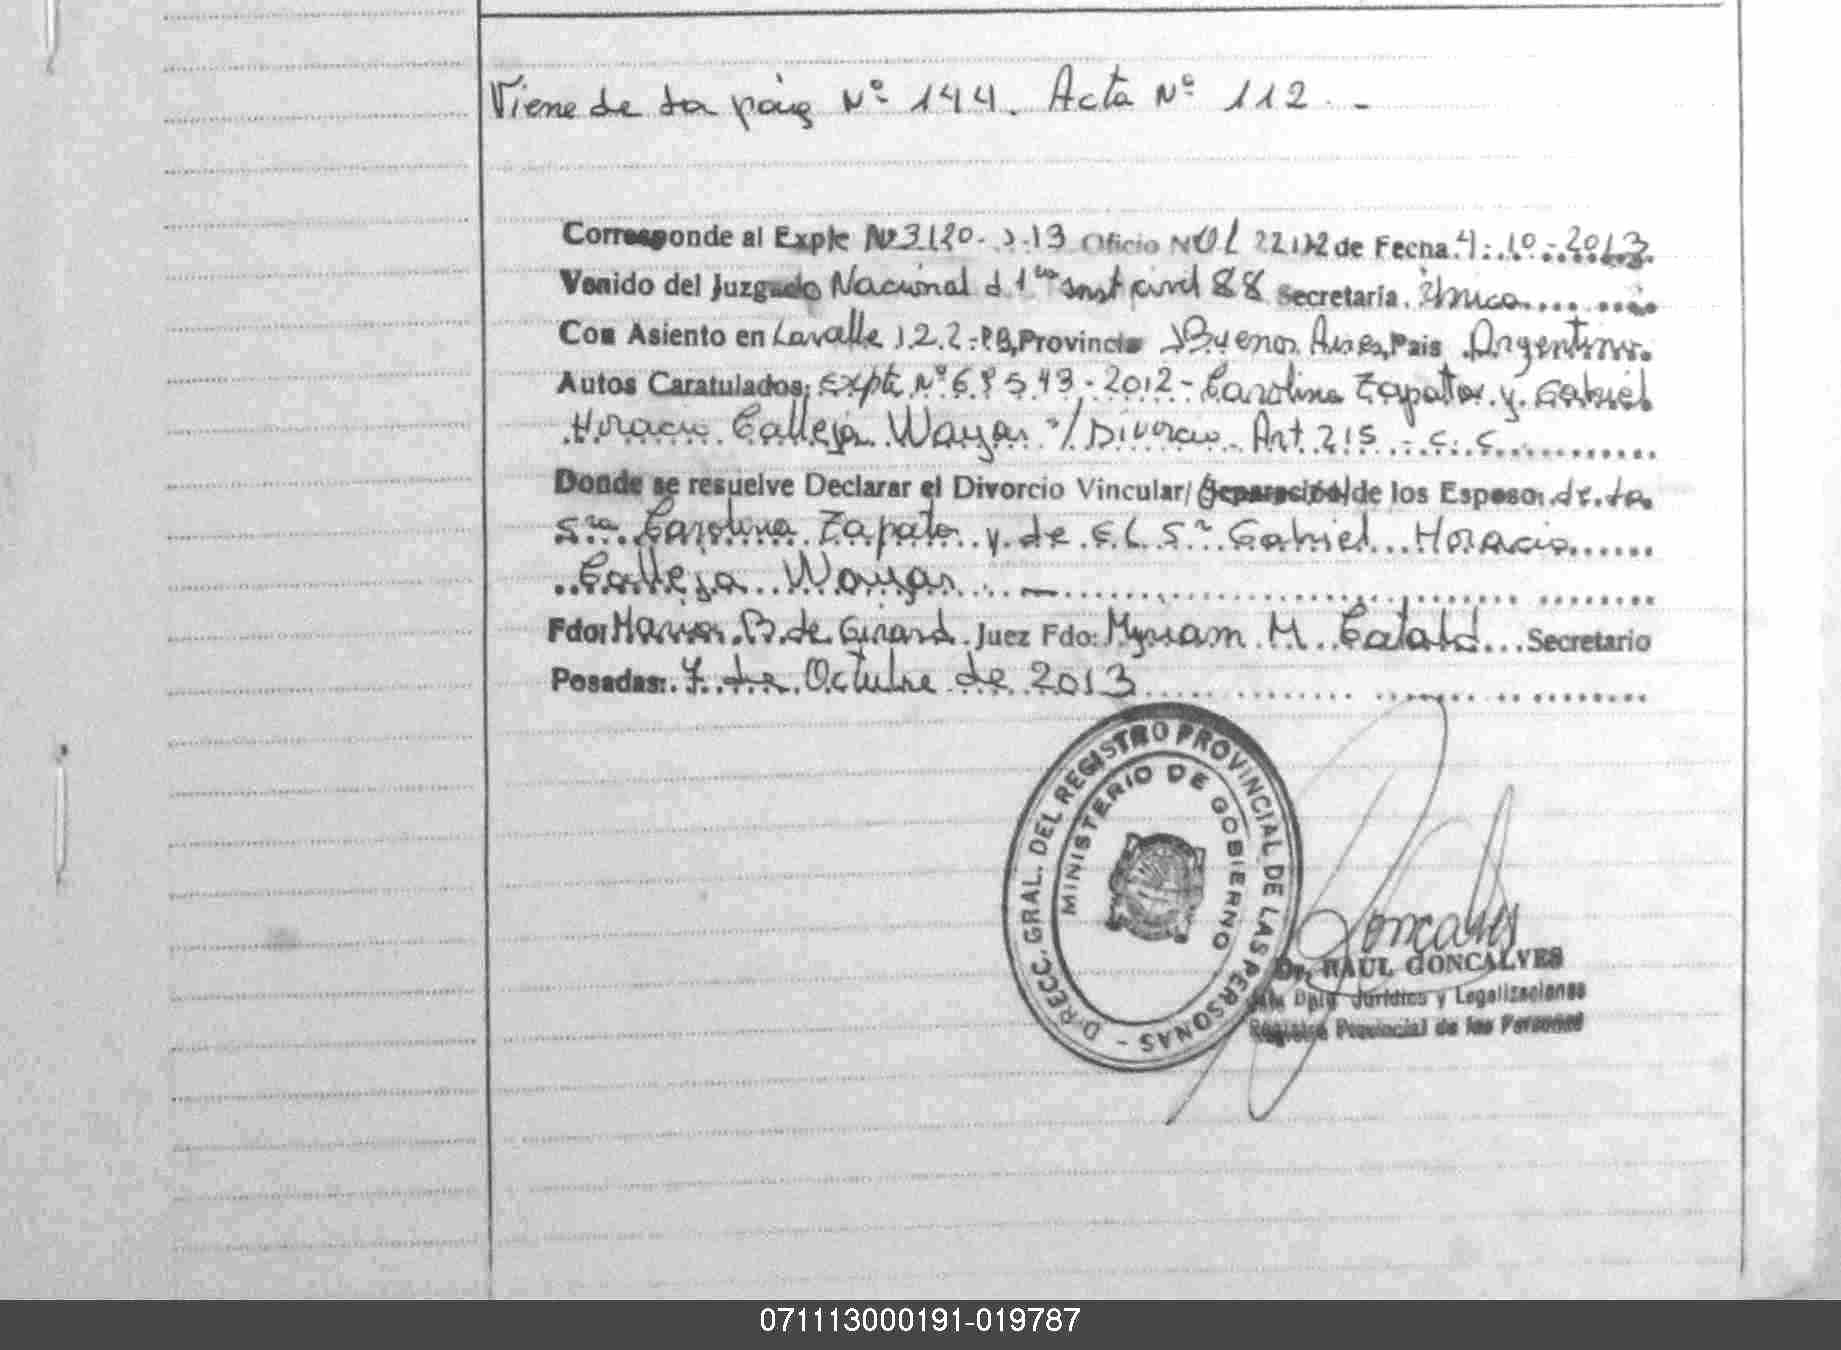 Viene de la pág Nº 144. Acta Nº 112.-
Corresponde al Expte Nº 3120- -13 Oficio Nº de Fecha 4-10-2013
Venido del Juzgado Nacional d 1ra Inst civil 88 Secretaria Única
Con Asiento en Lavalle Provincia Buenos Aires, Pais Argentina
Autos Caratulados: Expte Nº -2012- Carolina Zapata y Gabriel
Horacio Calleja Wayar s/ Divorcio Art 215 - C. C.
Donde se resuelve Declarar el Divorcio Vincular/ Separación/ de los Esposo: de la
Sra Carolina Zapata y de el Sr Gabriel Horacio
Calleja Wayar —
Fdo: B. de Girard. Juez Fdo: Myriam M. Cataldi Secretario
Posadas: 7 de Octubre de 2013
DIRECC. GRAL. DEL REGISTRO PROVINCIAL DE LAS PERSONAS -
MINISTERIO DE GOBIERNO
Goncalves
Dr. RAUL GONCALVES
Jefe Dpto Jurídico y Legalizaciones
Registro Provincial de las Personas
071113000191-019787